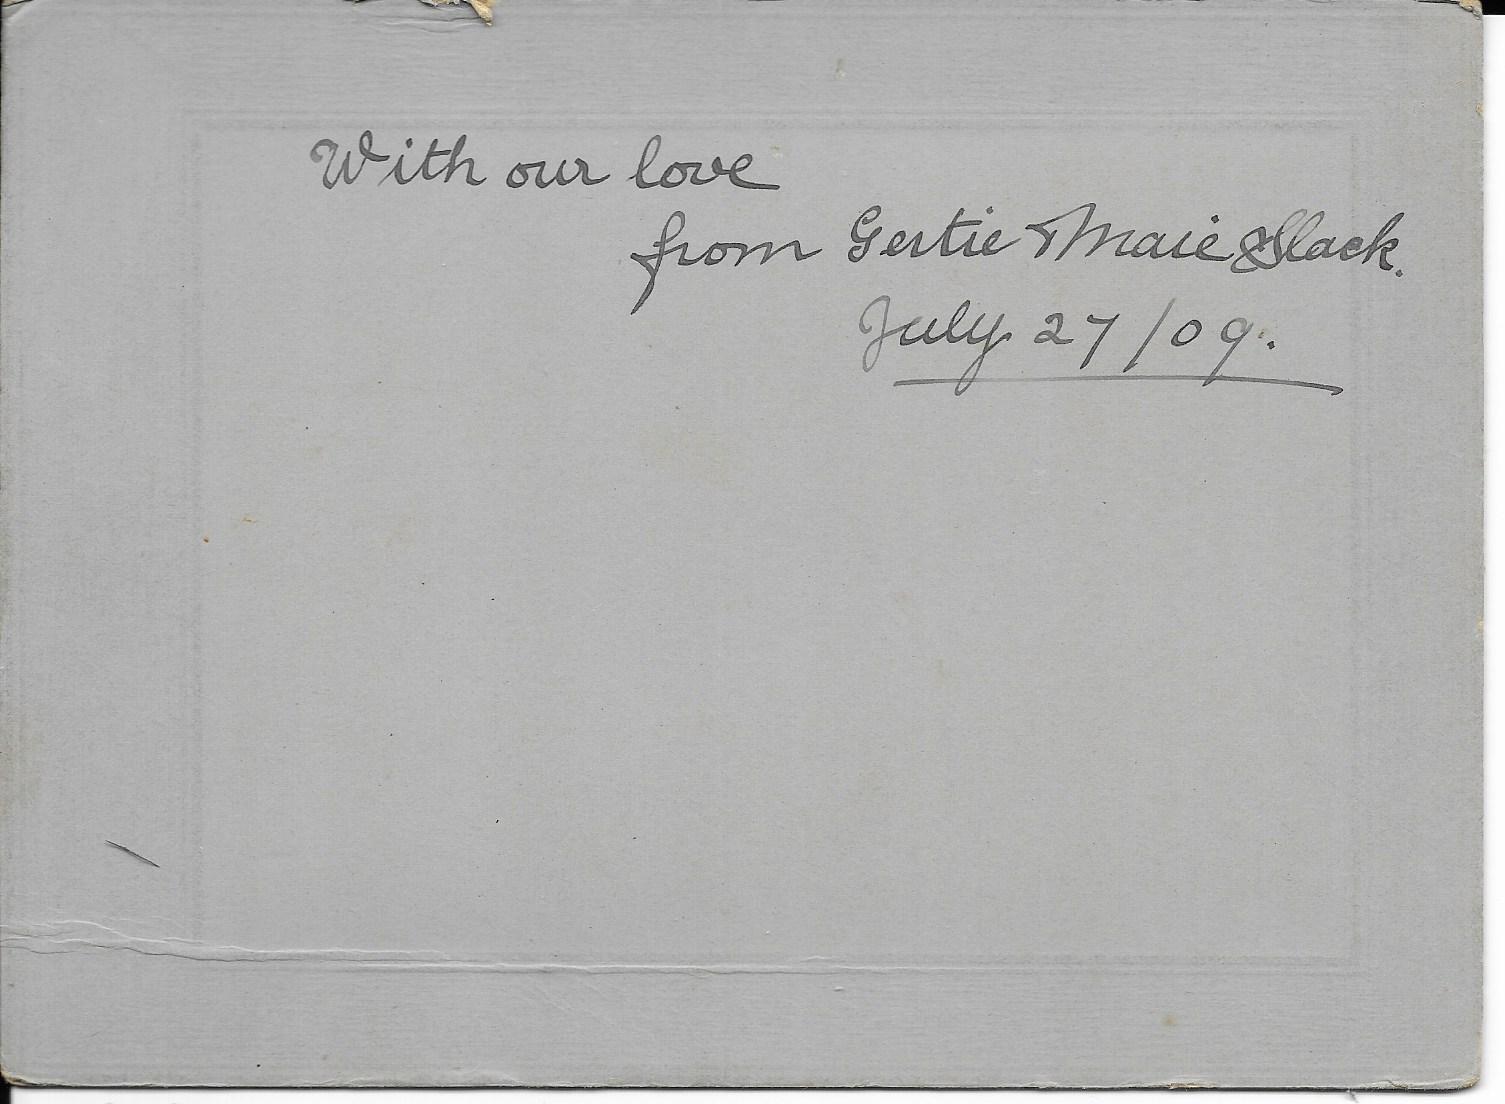 With our love
from Gertie & Maie Slack.
July 27/09.